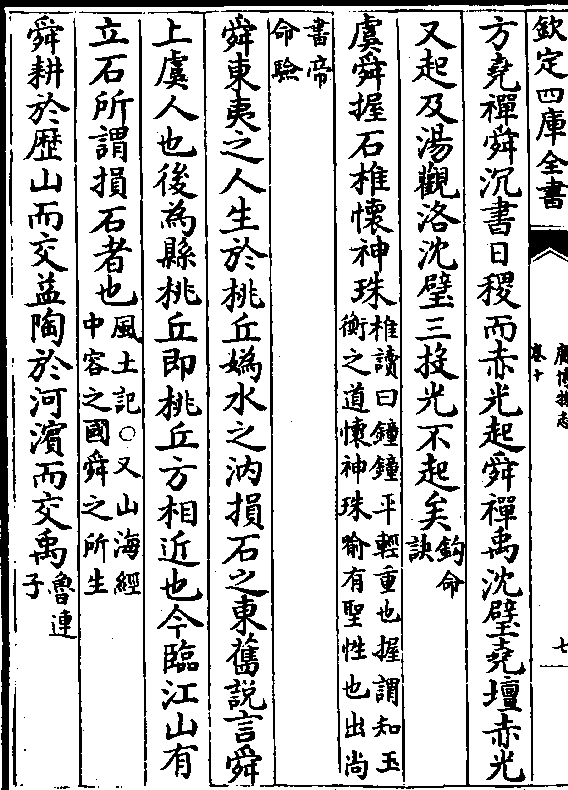 欽定四庫全書
廣博物志
卷十
七
方堯禪舜沉書日稷而赤光起舜禪禹沈璧堯壇赤光
又起及湯觀洛沈璧三投光不起矣鈎命訣
虞舜握石椎懷神珠椎讀曰鐘鐘平輕重也握謂知玉衡之道懷神珠喻有聖性也出尚
書帝命驗
舜東夷之人生於桃丘媯水之汭損石之東舊説言舜
上虞人也後為縣桃丘即桃丘方相近也今臨江山有
立石所謂損石者也風土記○又山海經中容之國舜之所生
舜耕於歴山而交益陶於河濱而交禹魯連子